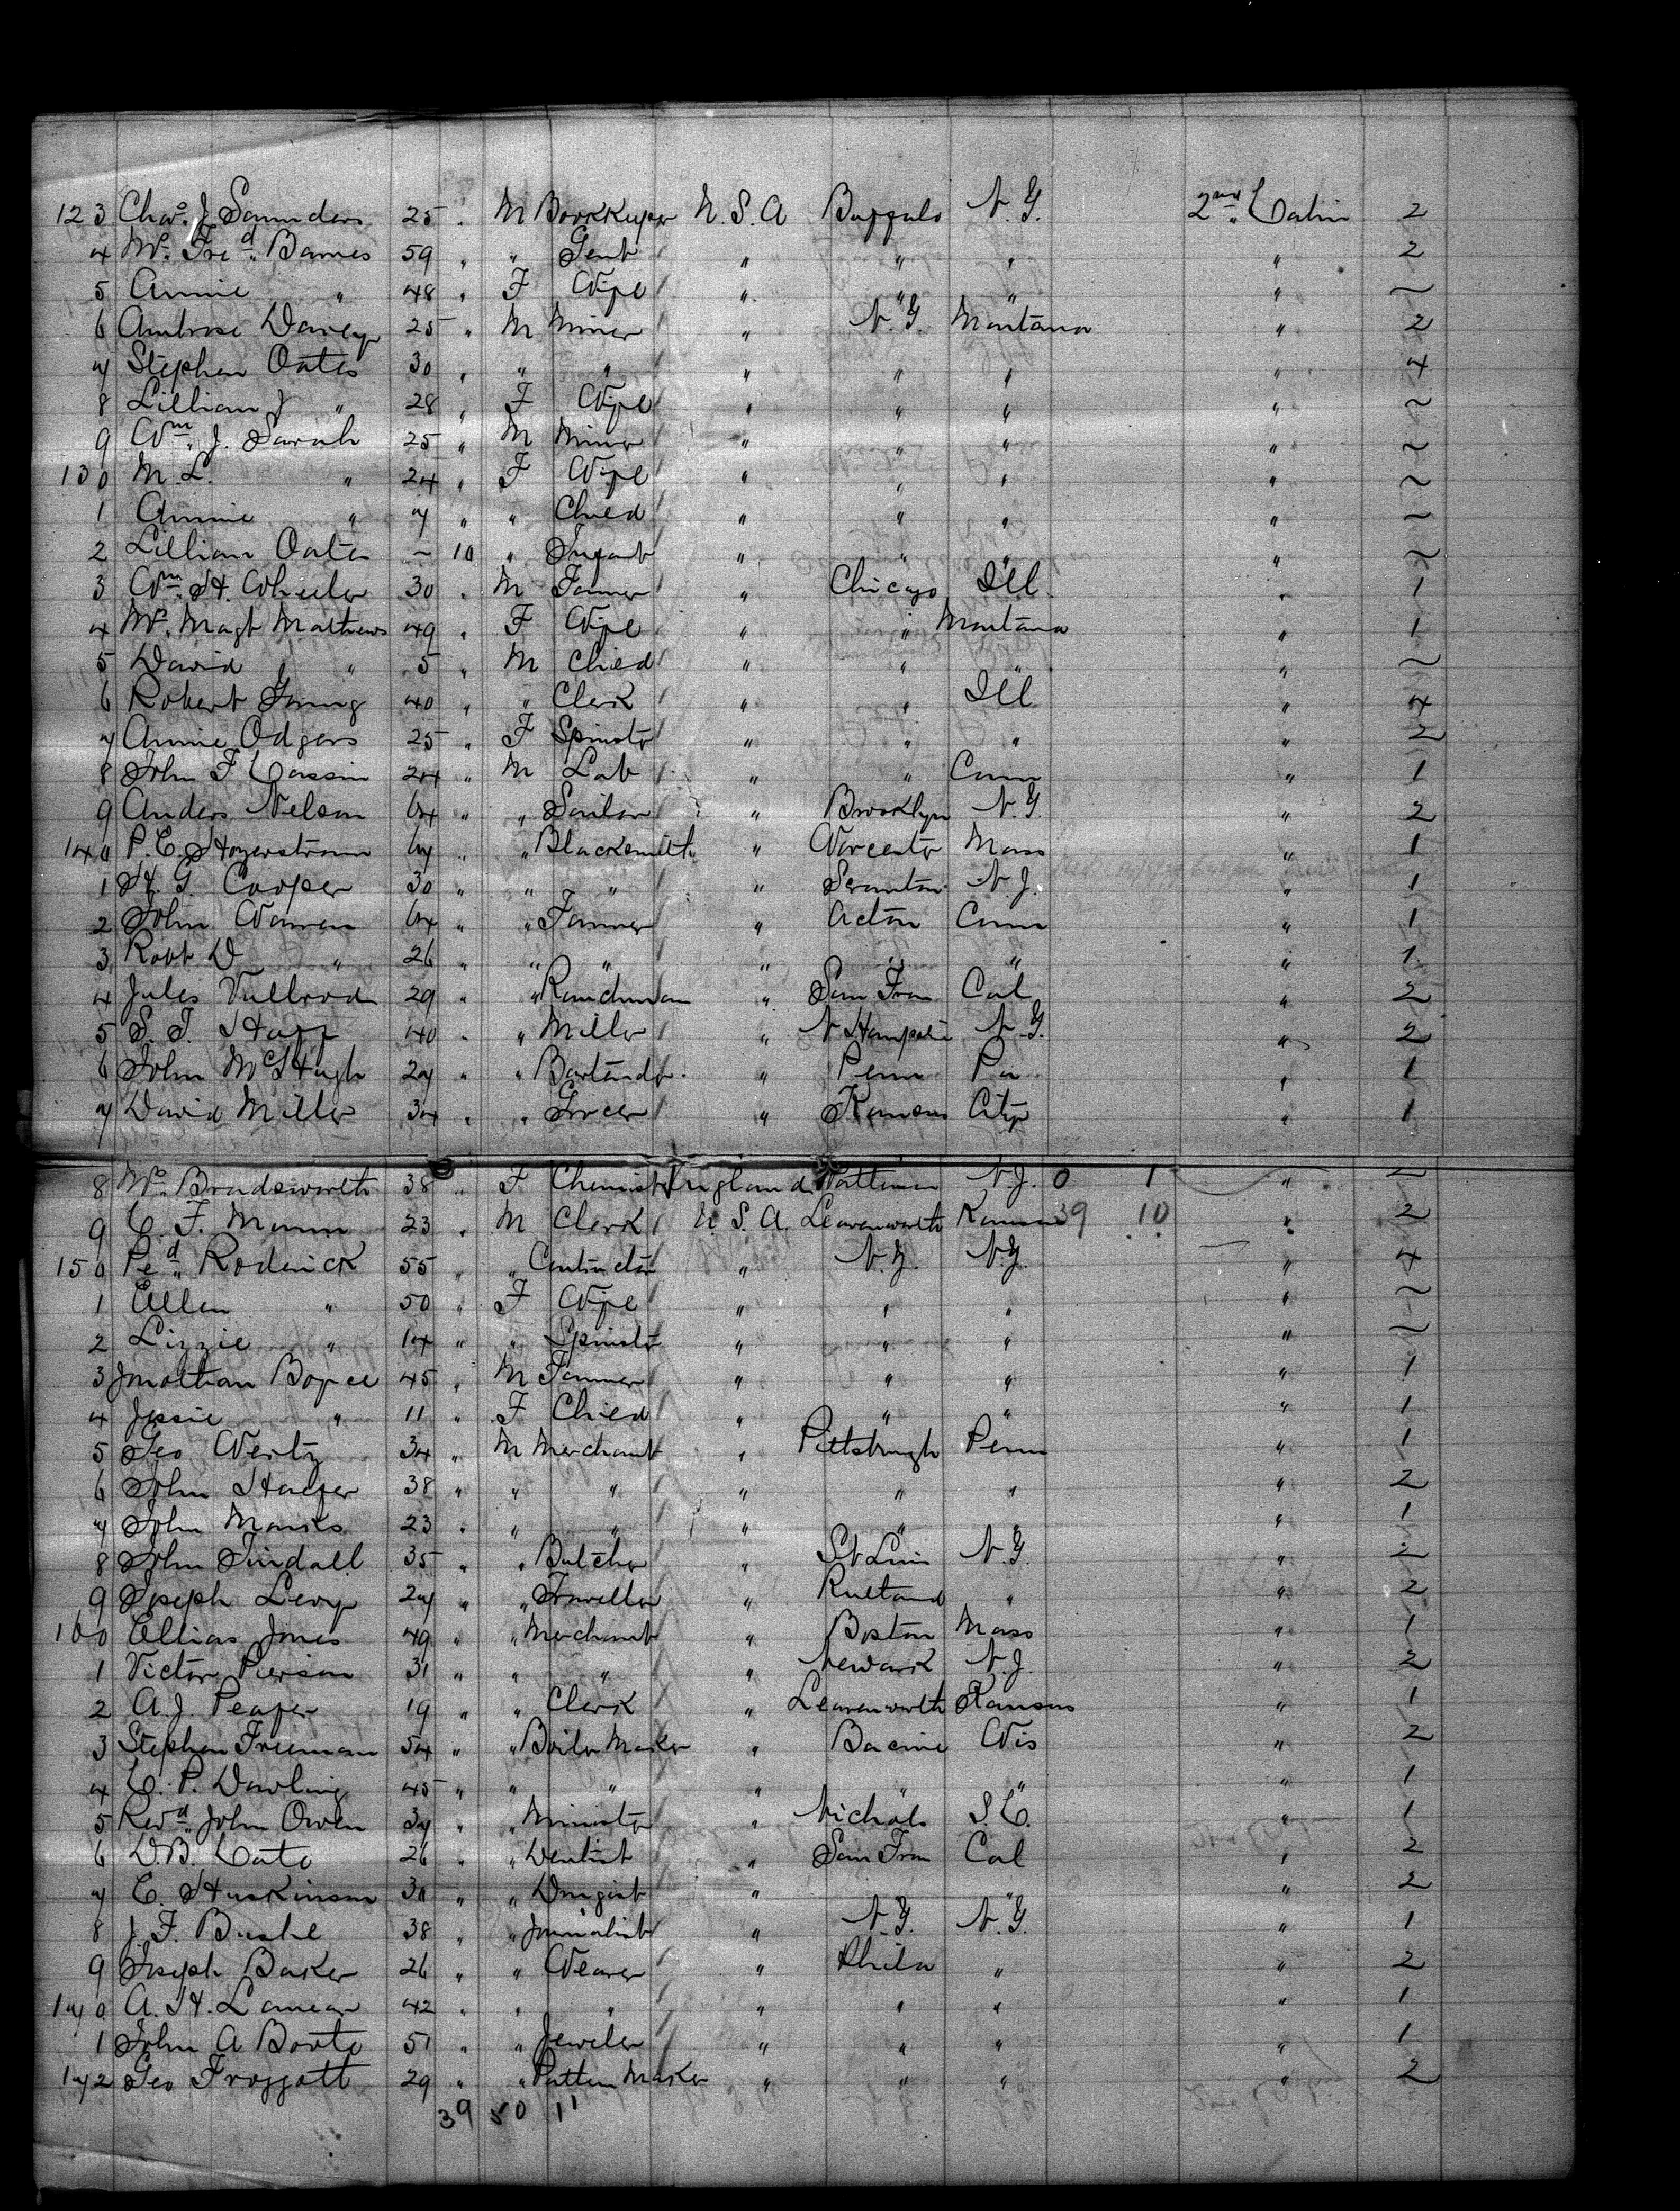 123 Chas. J Saunders 25 " M Bookkeeper U.S.A Buffalo N.Y. 2nd Cabin 2
4 Mr. Fred. Barnes 59 " " Gent " " " " 2
5 Annie " 48 " F Wife " " " " ~
6 Ambrose Davey 25 " M Miner " N.Y Montana " 2
7 Stephen Oates 30 " " " " " " " 4
8 Lillian J " 28 " F Wife " " " " ~
9 Wm. J. Sarah 25 " M Miner " " " " ~
130 M.L. " 24 " F Wife " " " " ~
1 Annie " 7 " " Child " " " " ~
2 Lillian Oates ~ 10 " Infant " " " " ~
3 Wm. H. Wheeler 30 " M Farmer " Chicago Ill " 1
4 Mrs. Magt Mathews 49 " F Wife " " Montana " 1
5 David " 5 " M Child " " " " ~
6 Robert Young 40 " " Clerk " " Ill " 4
7 Annie Odgers 25 " F Spinster " " " " 2
8 John F Cassin 24 " M Lab " " Conn " 1
9 Anders Nelson 64 " " Sailor " Brooklyn N.Y. " 2
140 P.E. Hogerstrom 67 " " Blacksmith " Worcester Mass " 1
1 H.G. Cooper 30 " " " " Scranton N.J. " 1
2 John Warren 64 " " Farmer " Acton Conn " 1
3 Robt D " 26 " " " " " " " 1
4 Jules Vullrod 29 " " Ranchman " San Fran Cal " 2
5 S.J. Hupp 40 " " Miller " N Hampsh N.Y. " 2
6 John McHugh 27 " " Bartender " Penn Pa " 1
7 David Miller 34 " " Grocer " Kansas City " 1
8 Mrs. Bradsworth 38 " F Chemist England Patterson N.J. 0 1 " 2
9 C.F. Mann 23 " M Clerk U.S.A. Leavenworth Kansas 39 10 " 2
150 Red. Roderick 55 " " Contractor " N.Y. N.Y. " 4
1 Ellen " 50 " F Wife " " " " ~
2 Lizzie " 14 " " Spinster " " " " ~
3 Jonathan Boyce 45 " M Farmer " " " " 1
4 Jessie " 11 " F Child " " " " 1
5 Geo Wertz 34 " M Merchant " Pittsburgh Penn " 1
6 John Haefer 38 " " " " " " " 2
7 John Marks 23 " " " " " " " 1
8 John Tindall 35 " " Butcher " St Luis N.Y. " 2
9 Joseph Levy 27 " " Traveller " Rutland " " 2
160 Ellias Jones 49 " " Merchant " Boston Mass " 1
1 Victor Pierson 31 " " " " Newark N.J. " 2
2 A.J. Peafer 19 " " Clerk " Leavenworth Kansas " 1
3 Stephen Freeman 54 " " Boiler Maker " Bacine Wis " 2
4 C.P. Dowling 45 " " " " " " " 1
5 Revd. John Owen 37 " " Minister " Nichols S.C. " 1
6 D.B. Cate 26 " " Dentist " San Fran Cal " 2
7 C. Huskinson 30 " " Drugist " " " " 2
8 J.F. Bushe 38 " " Journalist " N.Y. N.Y. " 1
9 Joseph Baker 26 " " Weaver " Phila " " 2
170 A.H. 42 " " " " " " " 1
1 John A Boote 51 " " Jeweler " " " " 1
172 Geo Froggatt 29 " " Pattern Maker " " " " 2
39 50 11